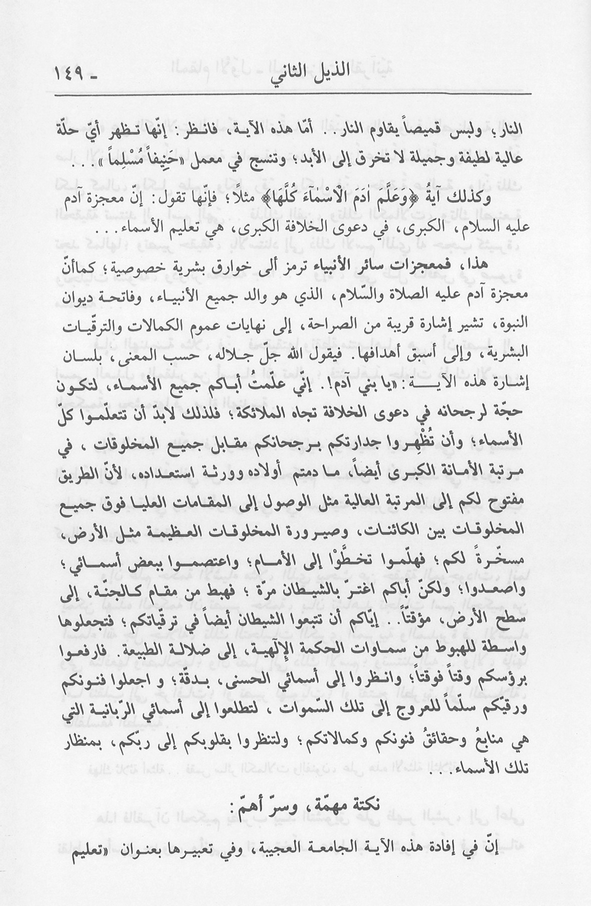 الذيل الثاني
- ١٤٩
النار؛ ولبس قميصاً يقاوم النار.. أمّا هذه الآية، فانظر: إنّها تظهر أيّ حلّة
عالية لطيفة وجميلة لا تخرق إلى الأبد؛ وتنسج في معمل «حَنِيفاً مُسْلِماً»...
وكذلك آيةُ ﴿وَعَلَّمَ ادَمَ الْاَسْمَآءَ كُلَّهَا﴾ مثلاً؛ فإنّها تقول: إنّ معجزة آدم
عليه السلام، الكبرى، في دعوى الخلافة الكبرى، هي تعليم الأسماء...
هذا، فمعجزات سائر الأنبياء ترمز ألى خوارق بشرية خصوصية؛ كماأنّ
معجزة آدم عليه الصلاة والسّلام، الذي هو والد جميع الأنبياء، وفاتحة ديوان
النبوة، تشير إشارة قريبة من الصراحة، إلى نهايات عموم الكمالات والترقّيات
البشرية، وإلى أسبق أهدافها. فيقول الله جلّ جلاله، حسب المعنى، بلسان
إشارة هذه الآية: «يا بني آدم!. إنّي علّمتُ أباكم جميع الأسماء، لتكون
حجّة لرجحانه في دعوى الخلافة تجاه الملائكة؛ فلذلك لابدّ أن تتعلّموا كلّ
الأسماء؛ وأن تُظْهِروا جدارتكم برجحانكم مقابل جميع المخلوقات ، في
مرتبة الأمانة الكبرى أيضاً، ما دمتم أولاده وورثة استعداده، لأنّ الطريق
مفتوح لكم إلى المرتبة العالية مثل الوصول إلى المقامات العليا فوق جميع
المخلوقات بين الكائنات، وصيرورة المخلوقات العظيمة مثل الأرض،
مسخّرةً لكم؛ فهلّموا تخطَّوْا إلى الأمام؛ واعتصموا ببعض أسمائي؛
واصعدوا؛ ولكنّ أباكم اغترّ بالشيطان مرّة ؛ فهبط من مقام كالجنّة، إلى
سطح الأرض، مؤقتاً.. إيّاكم أن تتبعوا الشيطان أيضاً في ترقّياتكم؛ فتجعلوها
واسطة للهبوط من سماوات الحكمة الإلٓهية، إلى ضلالة الطبيعة. فارفعوا
برؤسكم وقتاً فوقتاً؛ وانظروا إلى أسمائي الحسنى، بدقّة؛ و اجعلوا فنونكم
ورقيّكم سلّماً للعروج إلى تلك السّموات ، لتطلعوا إلى أسمائي الرّبانية التي
هي منابعُ وحقائقُ فنونكم وكمالاتكم؛ ولتنظروا بقلوبكم إلى ربّكم، بمنظار
تلك الأسماء...
نكتة مهمّة، وسرّ أهمّ:
إنّ في إفادة هذه الآية الجامعة العجيبة، وفي تعبيرها بعنوان «تعليم